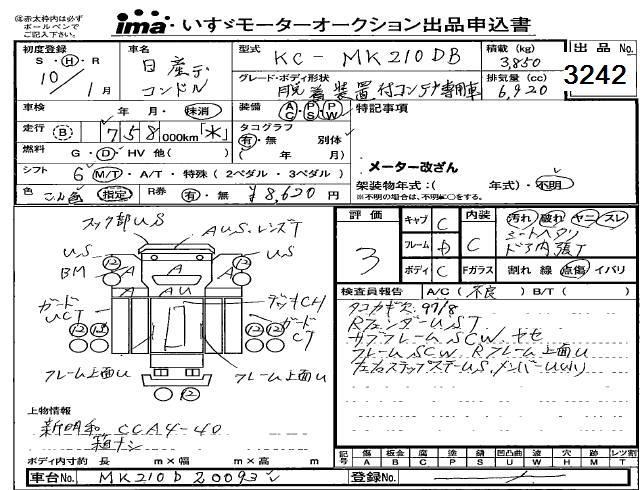 ⑱赤太枠内は必ず
ボールペンで
ご記入下さい。
ima・いすゞモーターオークション出品申込書
初度登録 車名 型式 KC-MK210DB 積載 (kg) 3,850 出品No.
S・H・R 日産デ グレード・ボディ形状 排気量 (cc) 3242
10/1月 コンドル 脱着装置付コンテナ専用車 6,920
車検 年 月・抹消 装備 AC・PS・PW 特記事項
走行 (B) 758,000km「水」 タコグラフ
有・無 別体
燃料 G・D・HV 他( ) ( 年 月)
シフト 6 M/T・A/T・特殊(2ペダル・3ペダル) メーター改ざん
架装物年式:( 年式)・不明
色 こん色 指定 R券 有・無 ¥8,620円 ※不明の場合は、不明に○をする。
フック部US
AUS.レンズT
US
BM
A
A
A
A
AU
US
ガード
UCT
デッキCH
ガード
CT
フレーム上面U
フレーム上面U
12
上物情報
新明和 CCA4-40
箱ナシ
ボディ内寸約 長 m×幅 m×高 m
車台No. MK210D20093
評価 3
キャブ C
フレーム
ボディ C
内装 C
汚れ 破れ ヤニ スレ
シートヘタリ
ドア内張T
Fガラス 割れ 線 点傷 イバリ
検査員報告 A/C(不良) B/T( )
タコカギズ 97/8
RフェンダーUST
サブフレームSCW.
フレームSCW. Rフレーム上面U
記号 傷A 板金B 腐C 塗P 錆S 凹凸曲U 波W 穴H 色M レンツ割T
登録No.